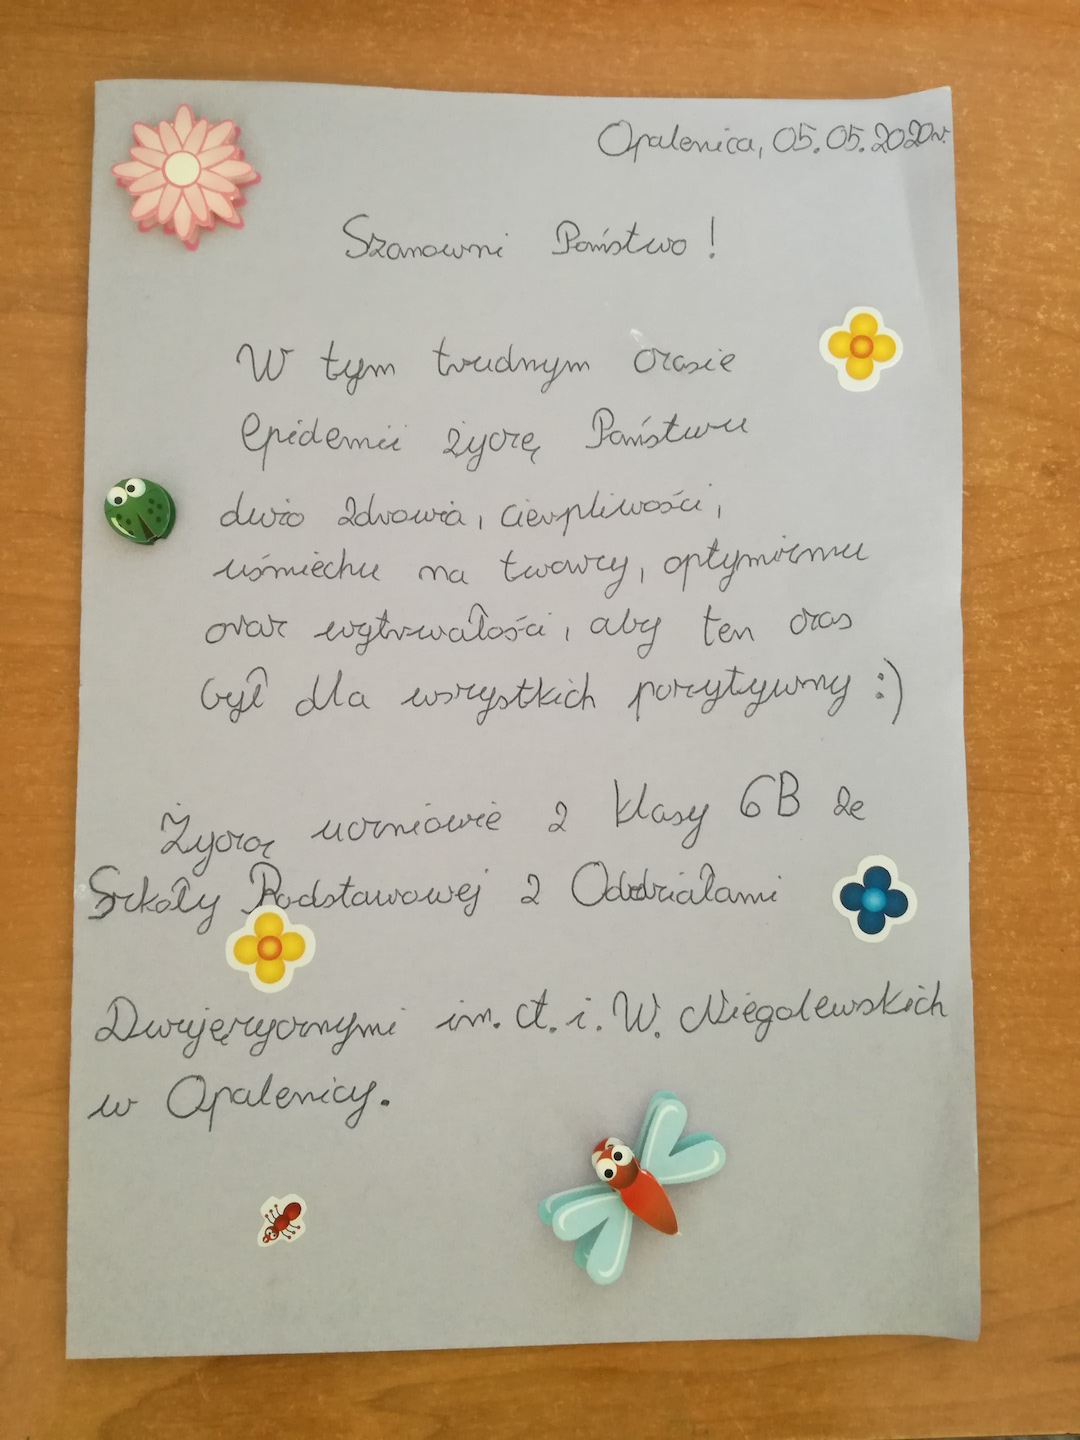 Opalenica, 05.05.2020r.
Szanowni Państwo!
W tym trudnym czasie
epidemii życzę Państwu
dużo zdrowia, cierpliwości,
uśmiechu na twarzy, optymizmu
oraz wytrwałości, aby ten czas
był dla wszystkich pozytywny :)
Życzą uczniowie z klasy 6B ze
Szkoły Podstawowej z Oddziałami
Dwujęzycznymi im. A. i. W. Niegolewskich
w Opalenicy.